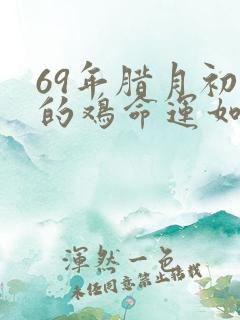 69年腊月初
的鸡命运如
渾然一色
未经同意禁止搭载